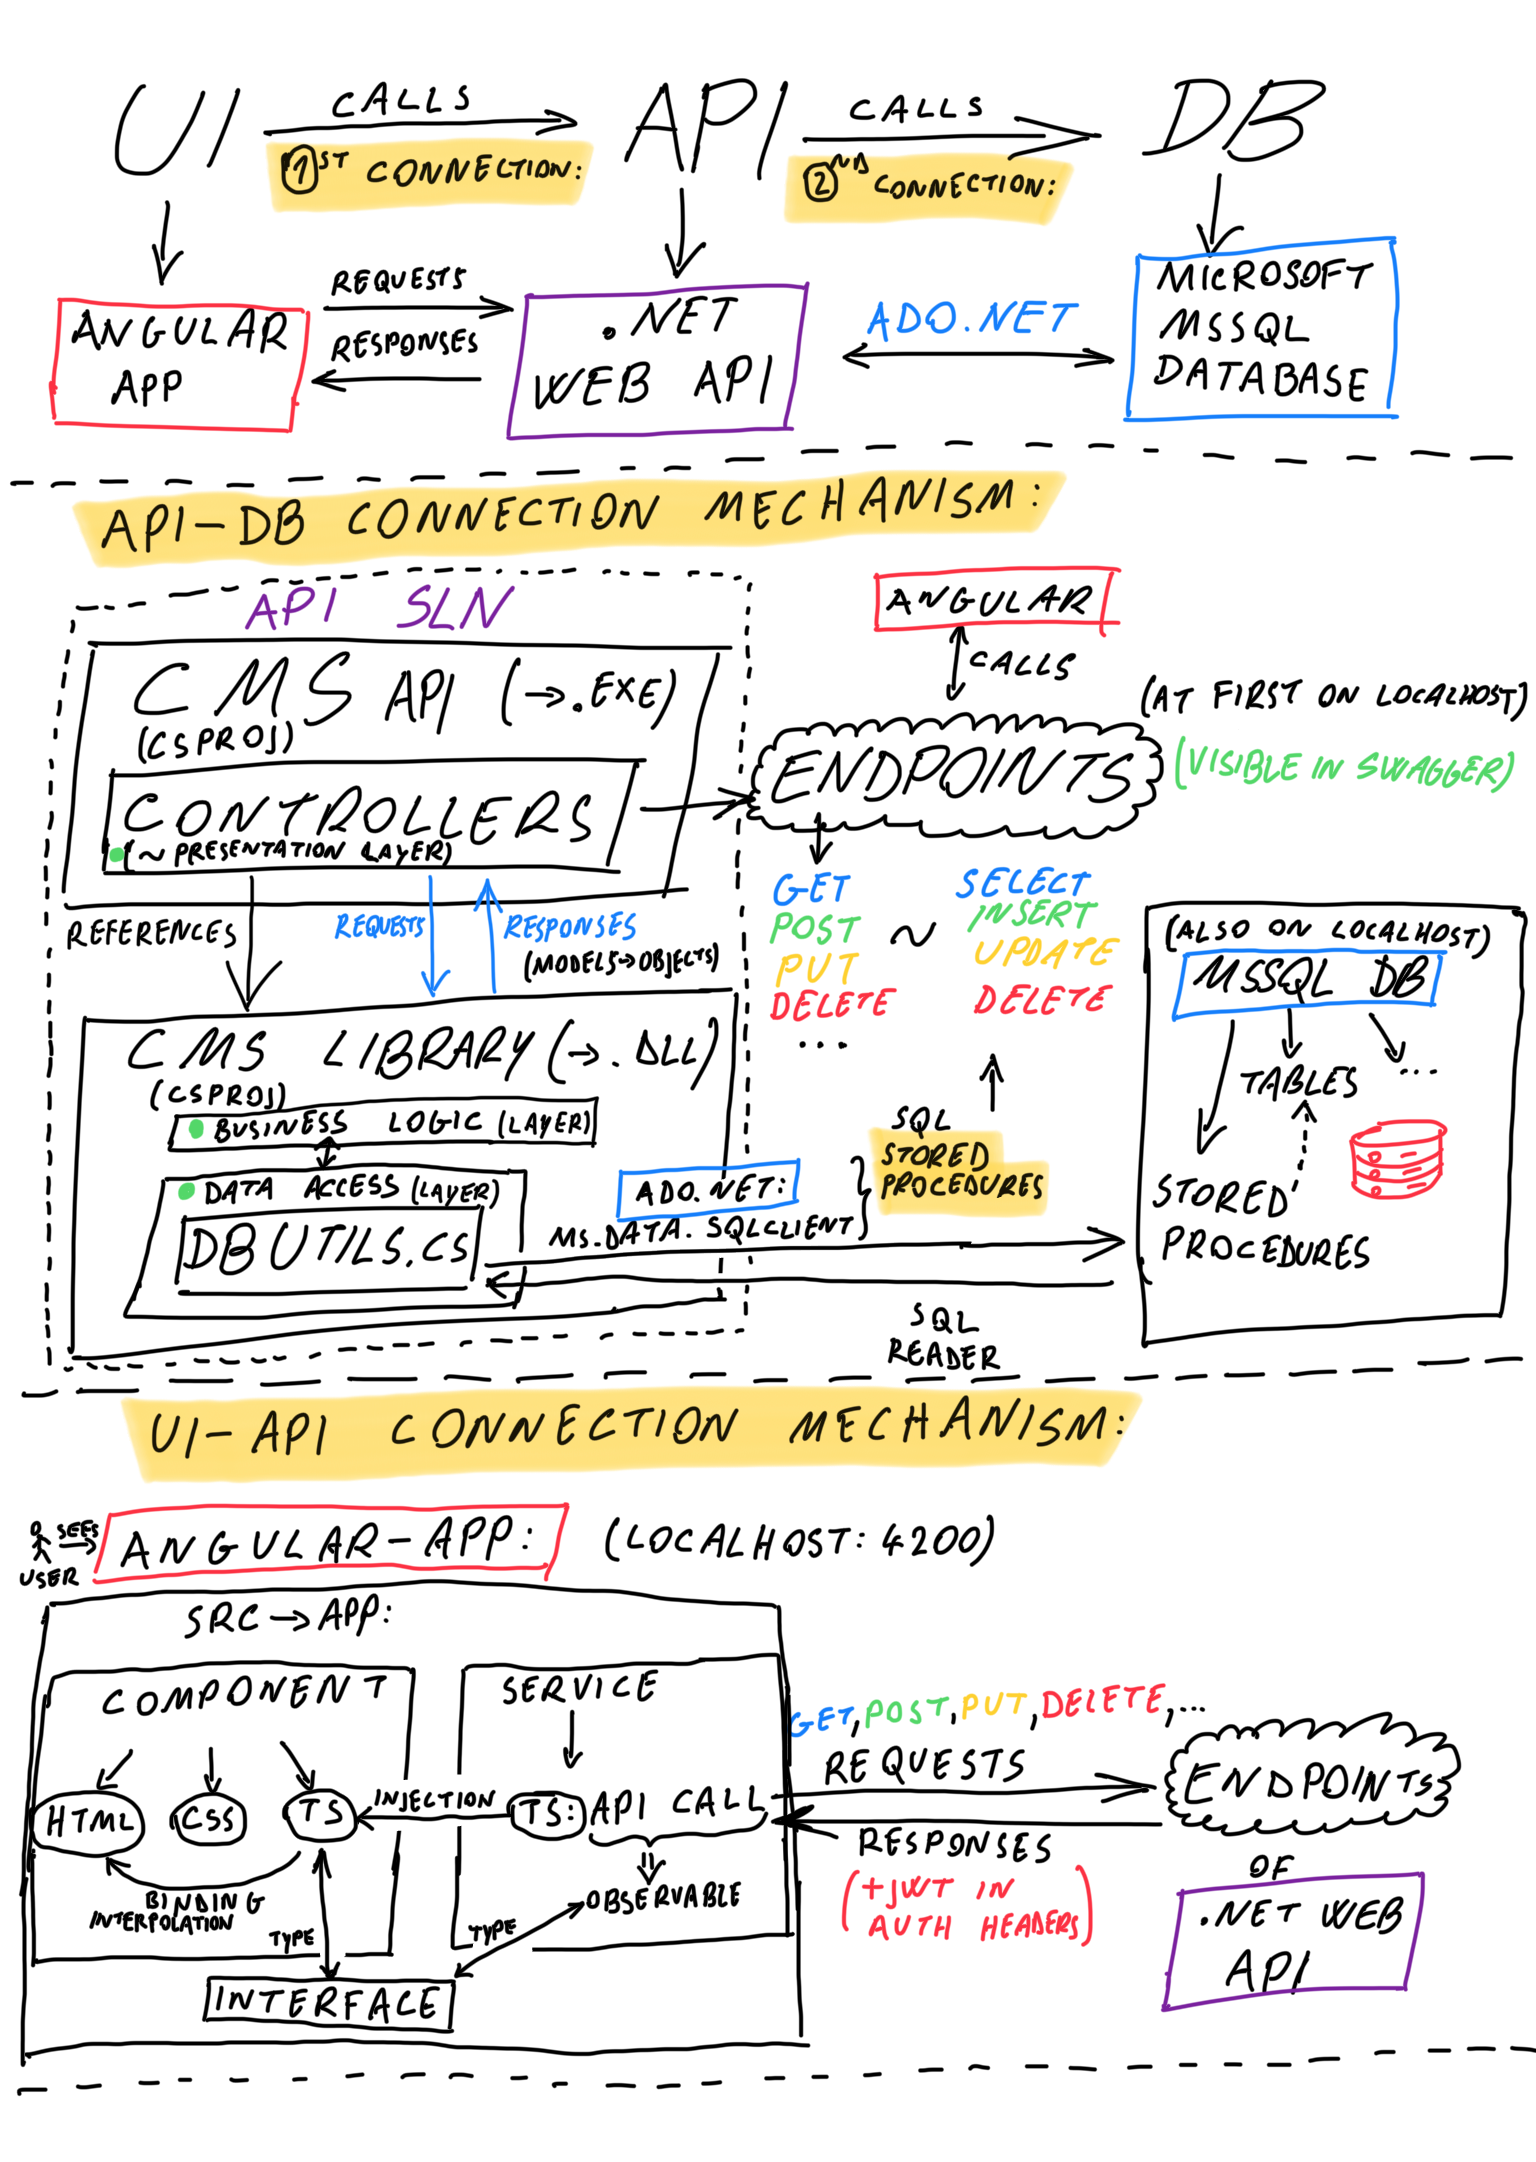 UI CALLS API CALLS DB
1ST CONNECTION: 2ND CONNECTION:
ANGULAR APP
REQUESTS
RESPONSES
.NET
WEB API
ADO.NET
MICROSOFT
MSSQL
DATABASE
API-DB CONNECTION MECHANISM:
API SLN
CMS API (→.EXE)
(CSPROJ)
CONTROLLERS
(~ PRESENTATION LAYER)
REFERENCES
REQUESTS
RESPONSES
(MODELS→OBJECTS)
CMS LIBRARY (→.DLL)
(CSPROJ)
BUSINESS LOGIC (LAYER)
DATA ACCESS (LAYER)
DB UTILS.CS
ANGULAR
CALLS
ENDPOINTS
(AT FIRST ON LOCALHOST)
(VISIBLE IN SWAGGER)
GET SELECT
POST ~ INSERT
PUT UPDATE
DELETE DELETE
...
SQL
STORED
PROCEDURES
ADO.NET:
MS.DATA.SQLCLIENT
SQL
READER
(ALSO ON LOCALHOST)
MSSQL DB
TABLES ...
STORED
PROCEDURES
UI-API CONNECTION MECHANISM:
SEES
USER
ANGULAR-APP: (LOCALHOST:4200)
SRC → APP:
COMPONENT
HTML CSS TS
BINDING
INTERPOLATION
TYPE
INJECTION
SERVICE
TS: API CALL
OBSERVABLE
TYPE
INTERFACE
GET, POST, PUT, DELETE, ...
REQUESTS
RESPONSES
(+JWT IN
AUTH HEADERS)
ENDPOINTS
OF
.NET WEB
API